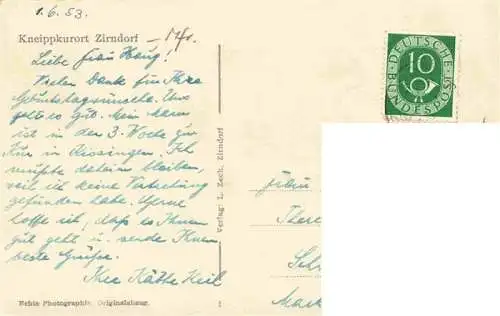 1.6.53.
Kneippkurort Zirndorf
Liebe Frau Haug!
Vielen Dank für Ihre
Geburtstagswünsche. Uns
geht es gut. Mein Mann
ist in den 3. Woche zur
Kur in Kissingen. Ich
mußte daheim bleiben,
weil ich keine Vertretung
gefunden habe. Gerne
hoffe ich, daß es Ihnen
gut geht u. sende Ihnen
beste Grüße.
Ihre Käthe Keil
Echte Photographie. Originalabzug.
Verlag: L. Zech, Zirndorf
DEUTSCHE
BUNDESPOST
10
Frau
There
Sch
Mark